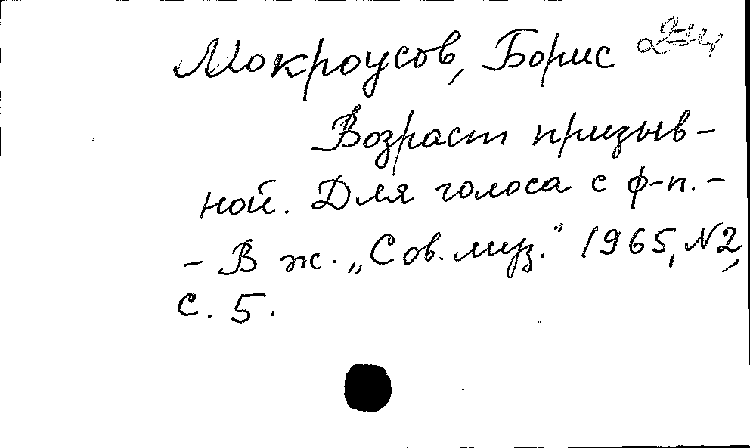 Мокроусов, Борис
Возраст призыв-
ной. Для голоса с ф-п. -
- В ж. „Сов. муз." 1965, N2,
с. 5.